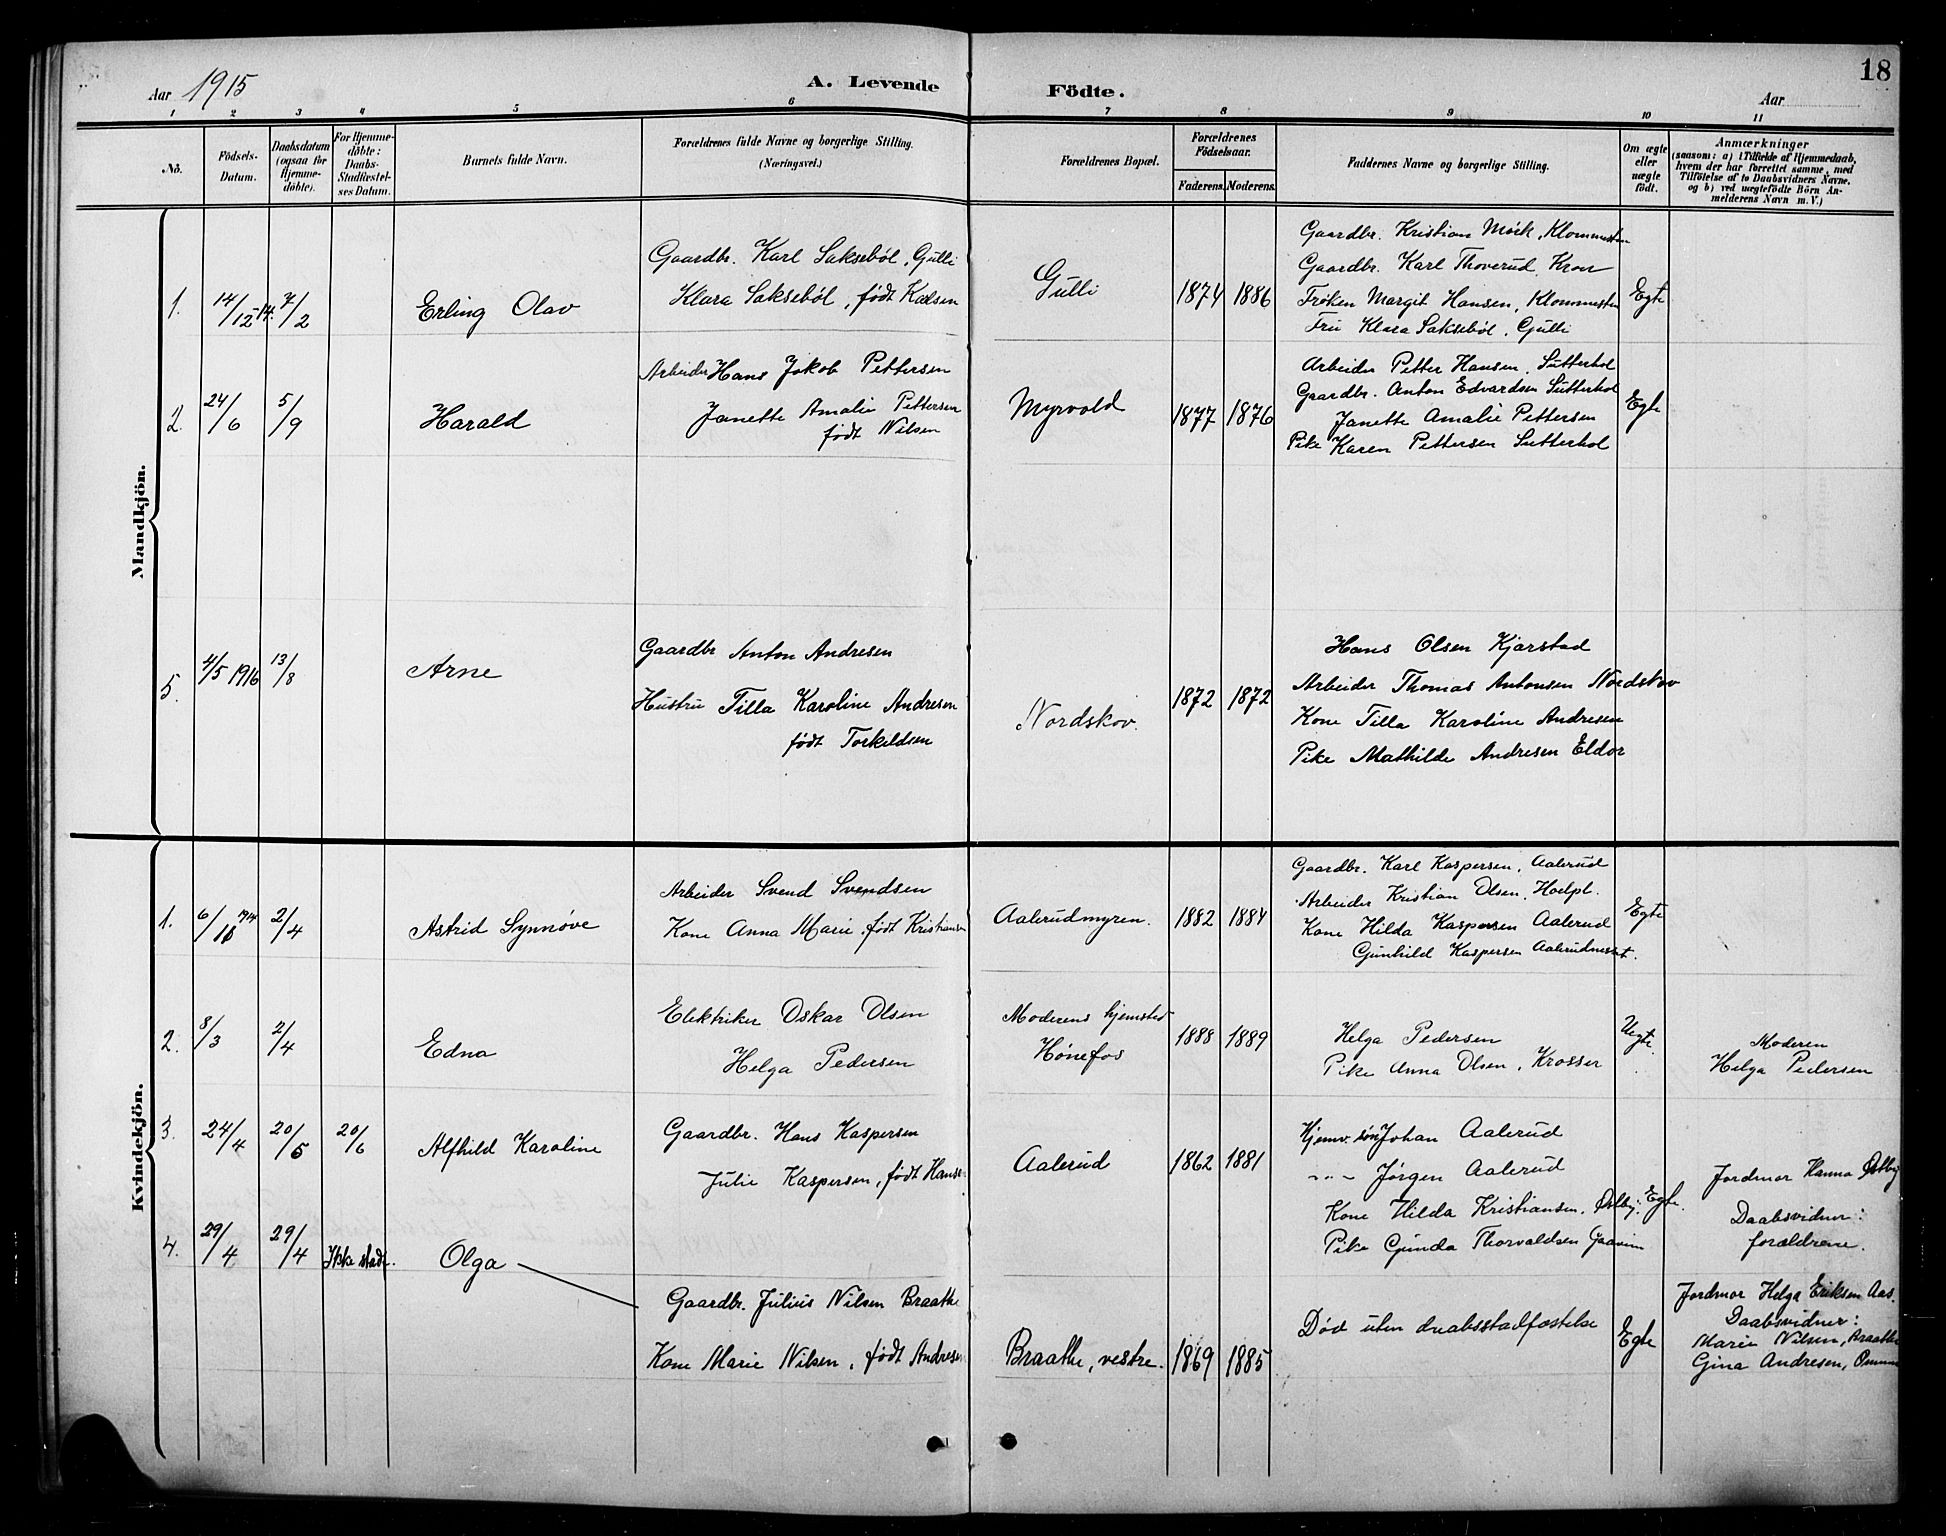 18
Aar 1915
A. Levende Födte.
Aar
1 2 3 4 5 6 7 8 9 10 11
No.
Födsels-Datum.
Daabsdatum (ogsaa for Hjemme-döbte).
For Hjemme-döbte: Daabs-Stadfæstel-ses Datum.
Barnets fulde Navn.
Forældrenes fulde Navne og borgerlige Stilling.
(Næringsvei.)
Forældrenes Bopæl.
Forældrenes Födselsaar.
Faderens. Moderens.
Faddernes Navne og borgerlige Stilling.
Om ægte eller uægte födt.
Anmærkninger
(saasom: a) i Tilfælde af Hjemmedaab,
hvem der har forrettet samme, med
Tilföielse af to Daabsvidners Navne,
og b) ved uægtefödte Börn An-
melderens Navn m. V.)
Mandkjön.
1. 14/12-14. 7/2 Erling Olav
Gaardbr. Karl Saksebøl, Gulli
Klara Saksebøl, født Karlsen
Gulli 1874 1886
Gaardbr. Kristian Mørk, Klommesten
Gaardbr. Karl Thoverud, Kron
Frøken Margit Hansen, Klommesten
Fru Klara Saksebøl, Gulli
Egte
2. 24/6 5/9 Harald
Arbeider Hans Jakob Pettersen
Janette Amalie Pettersen
født Nilsen
Myrvold 1877 1876
Arbeider Petter Hansen, Sutterhol
Gaardbr. Anton Edvardsen Sutterhol
Janette Amalie Pettersen
Pike Karen Pettersen Sutterhol
Egte
5. 4/5 1916 13/8 Arne
Gaardbr Anton Andresen
Hustru Tilla Karoline Andresen
født Torkildsen
Nordskov. 1872 1872
Hans Olsen Kjarstad
Arbeider Thomas Antonsen Nordskov
Kone Tilla Karoline Andresen
Pike Mathilde Andresen Eldor
Kvindekjön.
1. 6/11 1914 2/4 Astrid Synnøve
Arbeider Svend Svendsen
Kone Anna Marie, født Kristiansen
Aalerudmyren. 1882 1884
Gaardbr. Karl Kaspersen, Aalerud
Arbeider Kristian Olsen, Hoelpl.
Kone Hilda Kaspersen Aalerud
Gunhild Kaspersen
Egte
2. 8/3 2/4 Edna
Elektriker Oskar Olsen
Helga Pedersen
Moderens hjemsted
Hønefos 1888 1889
Helga Pedersen
Pike Anna Olsen, Krosser
Uegte.
Moderen
Helga Pedersen
3. 24/4 20/5 20/6 Alfhild Karoline
Gaardbr. Hans Kaspersen
Julie Kaspersen, født Hansen
Aalerud 1862 1881
Hjemv. søn Johan Aalerud
-"- Jørgen Aalerud
Kone Hilda Kristiansen, Østby.
Pike Gunda Thorvaldsen
Egte.
Jordmor Hanna Østby
Daabsvidner:
forældrene.
4. 29/4 29/4 Ikke stadf. Olga
Gaardbr. Julius Nilsen Braathe
Kone Marie Nilsen, født Andresen
Braathe, vestre. 1869 1885
Død uten daabsstadfæstelse
Egte
Jordmor Helga Eriksen Aas.
Daabsvidner:
Marie Nilsen, Braathe
Gina Andresen,